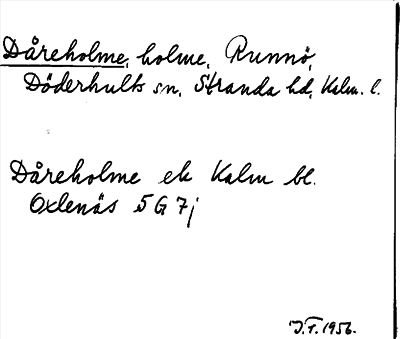 Dåreholme, holme, Runnö,
Döderhults sn, Stranda hd, Kalm. l.
Dåreholme ek Kalm bl.
Oxlenäs 5 G 7 j
J.T. 1956.